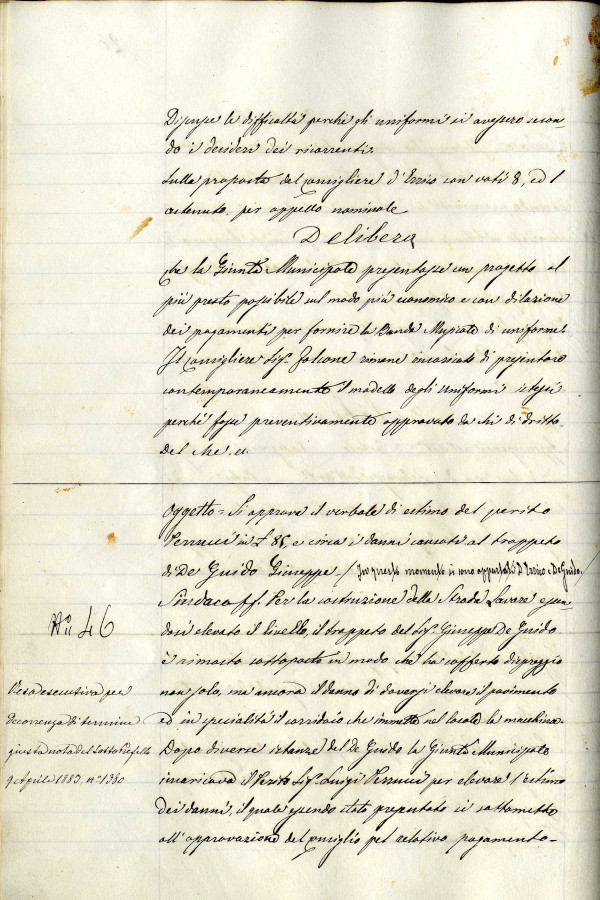 Dispose le difficoltà perché gli uniformi si avessero secon-
do i desideri dei ricorrenti.
Sulla proposta del consigliere d'Errico con voti 8, ed 1
astenuto, per appello nominale
Delibera
che la Giunta Municipale presentasse un progetto al
più presto possibile sul modo più economico e con dilazione
dei pagamenti per fornire la Banda Musicale di uniforme.
Il consigliere Sig. Falcone rimane incaricato di presentare
contemporaneamente il modello degli uniformi istessi
perché fosse preventivamente approvato da chi di dritto.
Del che ea.
Oggetto = Si approva il verbale di estimo del perito
Perrucci in £ 85, e circa i danni causati al trappeto
di De Guido Giuseppe / In questo momento si sono appartati D'Errico e De Guido /
Nº 46
Sindaco ff. Per la costruzione della Strada Lavare essen-
dosi elevato il livello, il trappeto del Sig. Giuseppe De Guido
è rimasto sottoposto in modo che ha sofferto dispreggio
non solo, ma ancora il danno di doversi elevare il pavimento
ed in specialità il corridoio che immette nel locale la macchina.
Dopo diverse istanze del De Guido la Giunta Municipale
incaricava il Perito Sig. Luigi Perrucci per elevare l'estimo
dei danni, il quale essendo stato presentato si sottomette
all'approvazione del consiglio pel relativo pagamento.
Resa esecutiva per
decorrenza di termine
giusta nota del Sotto Prefetto
9 Aprile 1883, nº 1380